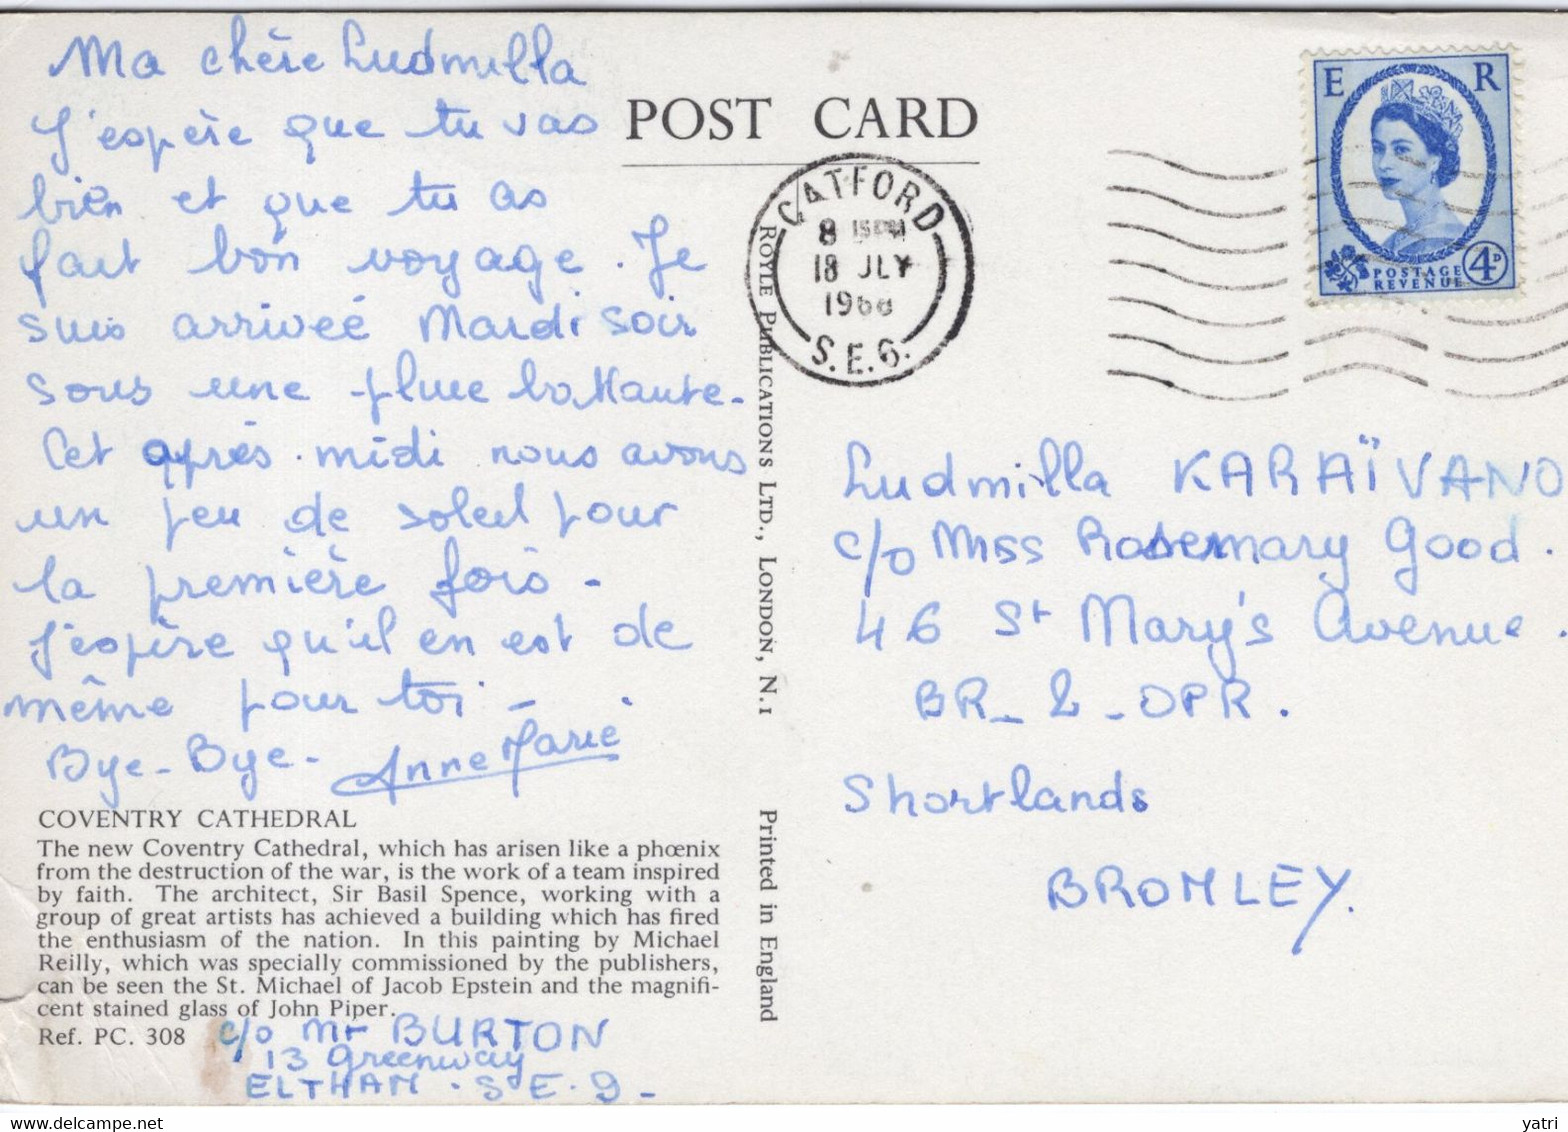 Ma chère Ludmilla
J'espère que tu vas
bien et que tu as
fait bon voyage. Je
suis arrivée Mardi soir
sous une pluie battante.
Cet après-midi nous avons
un peu de soleil pour
la première fois -
J'espère qu'il en est de
même pour toi -
Bye-Bye- Anne Marie
COVENTRY CATHEDRAL
The new Coventry Cathedral, which has arisen like a phœnix
from the destruction of the war, is the work of a team inspired
by faith. The architect, Sir Basil Spence, working with a
group of great artists has achieved a building which has fired
the enthusiasm of the nation. In this painting by Michael
Reilly, which was specially commissioned by the publishers,
can be seen the St. Michael of Jacob Epstein and the magnifi-
cent stained glass of John Piper.
Ref. PC. 308
c/o Mr BURTON
13 Greenway
ELTHAM . S.E.9-
POST CARD
ROYLE PUBLICATIONS LTD., LONDON, N.1
Printed in England
CATFORD
8 15 PM
18 JLY
1966
S.E.6.
E R
POSTAGE
REVENUE
4D
Ludmilla KARAÏVANO
c/o Miss Rosemary Good.
46 St Mary's Avenue.
BR_2_OPR.
Shortlands
BROMLEY.
yatri